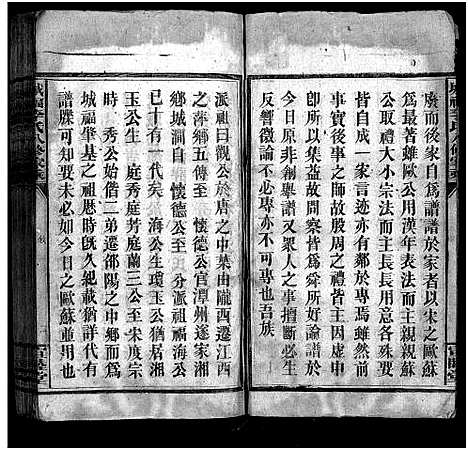 廢而後家自爲譜譜於家者以宋之歐蘇
爲最著雖歐公用漢年表法而主親親蘇
公取禮大小宗法而主長長用意各殊要
皆自成一家言亦近有鄰於專焉雖然前
事實後事之師故殷周之禮皆有因虚中
卽所以集益故問察爲舜所好論譜
亦專原非創舉譜又衆人之事擅斷必生
反響徵論亦專亦不可專也吾族
派祖曰觀公於唐之中葉由隴西遷江西
之萍鄉五傳至 懷德公官潭州遂家湘
鄉城澗自 懷德公至 分派祖福海公
已十有一代矣 海公生瓊玉公猶居湘
玉公生 庭秀庭芳庭蘭三公至宋度宗
時 秀公始偕二弟遷邵陽之中鄉而城
城福肇基之祖厯時旣久紀載猶詳代有
譜牒可知要未必如今日之歐蘇並用也